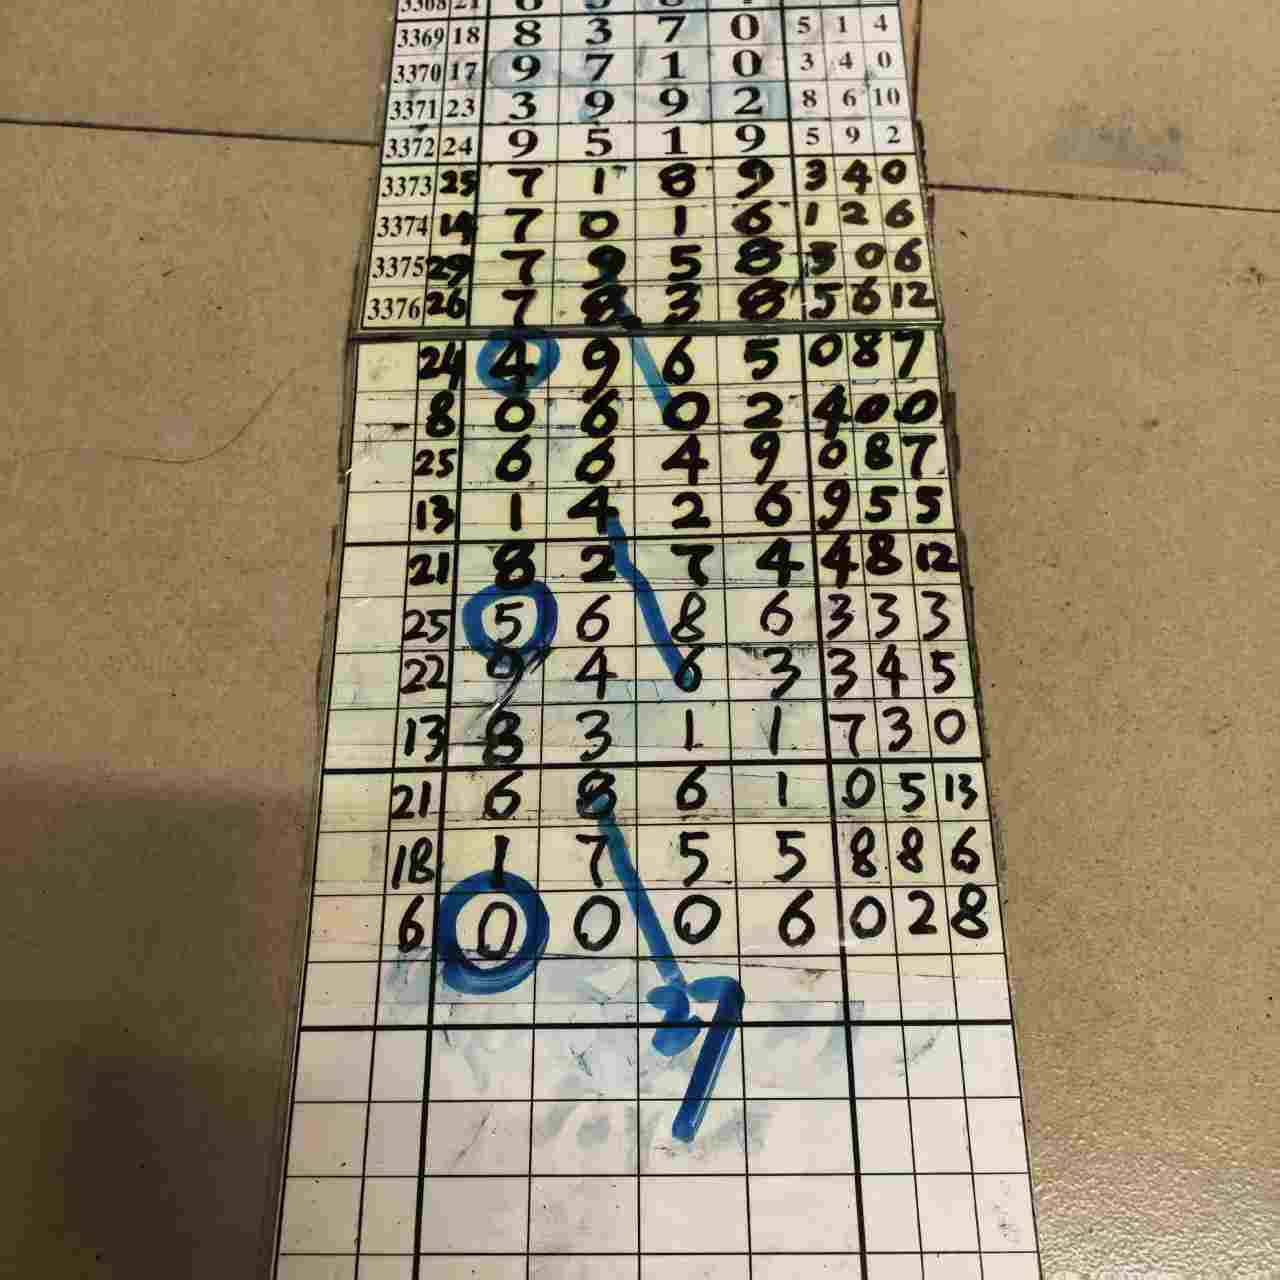 3369 18 8 3 7 0 5 1 4
3370 17 9 7 1 0 3 4 0
3371 23 3 9 9 2 8 6 10
3372 24 9 5 1 9 5 9 2
3373 25 7 1 8 9 3 4 0
3374 14 7 0 1 6 1 2 6
3375 29 7 9 5 8 3 0 6
3376 26 7 8 3 8 5 6 12
24 4 9 6 5 0 8 7
8 0 6 0 2 4 0 0
25 6 6 4 9 0 8 7
13 1 4 2 6 9 5 5
21 8 2 7 4 4 8 12
25 5 6 8 6 3 3 3
22 9 4 6 3 3 4 5
13 8 3 1 1 7 3 0
21 6 8 6 1 0 5 13
18 1 7 5 5 8 8 6
6 0 0 0 6 0 2 8
37